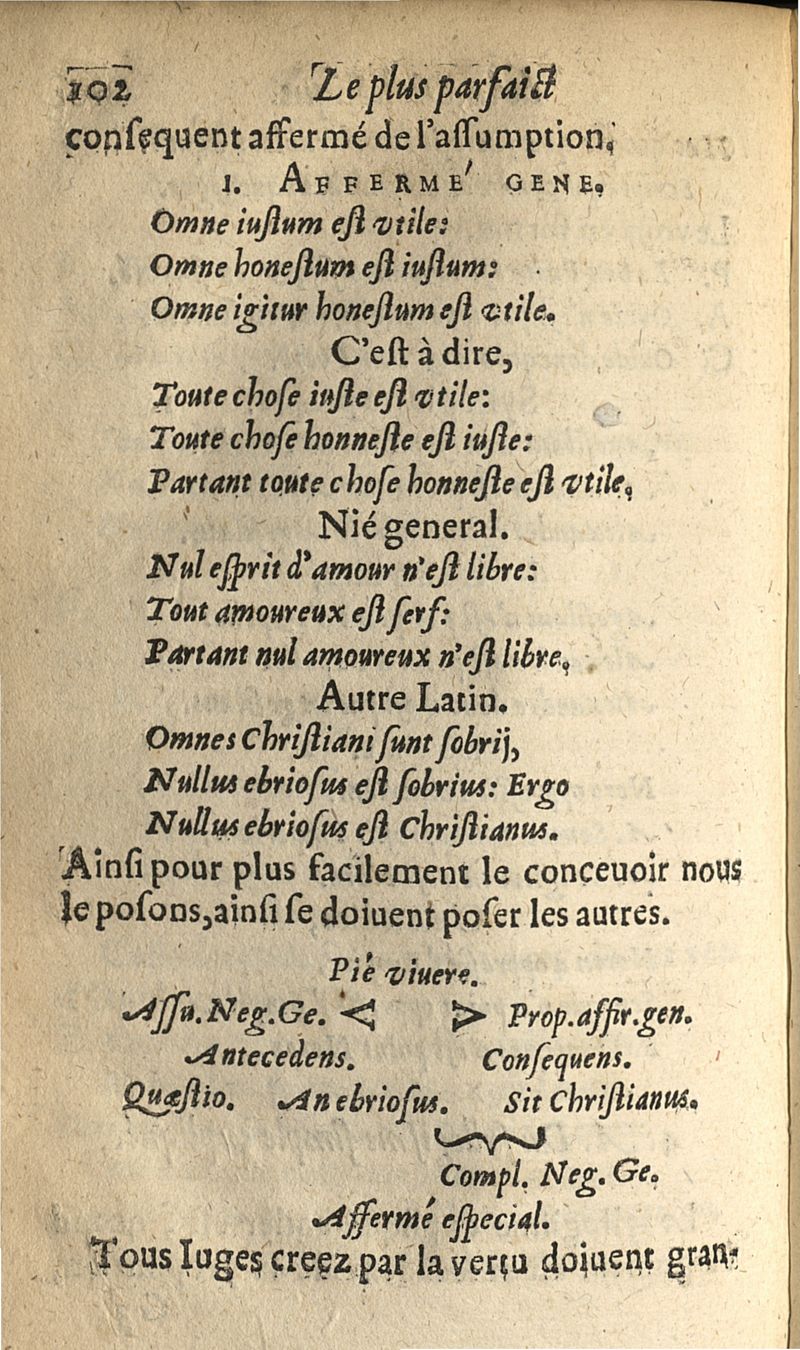 102 Le plus parfaict
consequent affermé de l'aſſumption.
1. AFFERME' GENE.
Omne iuſtum eſt vtile:
Omne honeſtum eſt iuſtum:
Omne igitur honeſtum eſt vtile.
C'eſt à dire,
Toute choſe iuſte eſt vtile:
Toute choſe honneſte eſt iuſte:
Partant toute choſe honneſte eſt vtile,
Nié general.
Nul eſprit d'amour n'eſt libre:
Tout amoureux eſt ſerf:
Partant nul amoureux n'eſt libre,
Autre Latin.
Omnes Chriſtiani ſunt ſobrij,
Nullus ebrioſus eſt ſobrius: Ergo
Nullus ebrioſus eſt Chriſtianus.
Ainſi pour plus facilement le conceuoir nous
le poſons, ainſi ſe doiuent poſer les autres.
Pié viuere.
Aſſu. Neg. Ge. < > Prop. affir. gen.
Antecedens. Conſequens.
Quæſtio. An ebrioſus. Sit Chriſtianus.
Compl. Neg. Ge.
Affermé eſpecial.
Tous Iuges creez par la vertu doiuent gran-